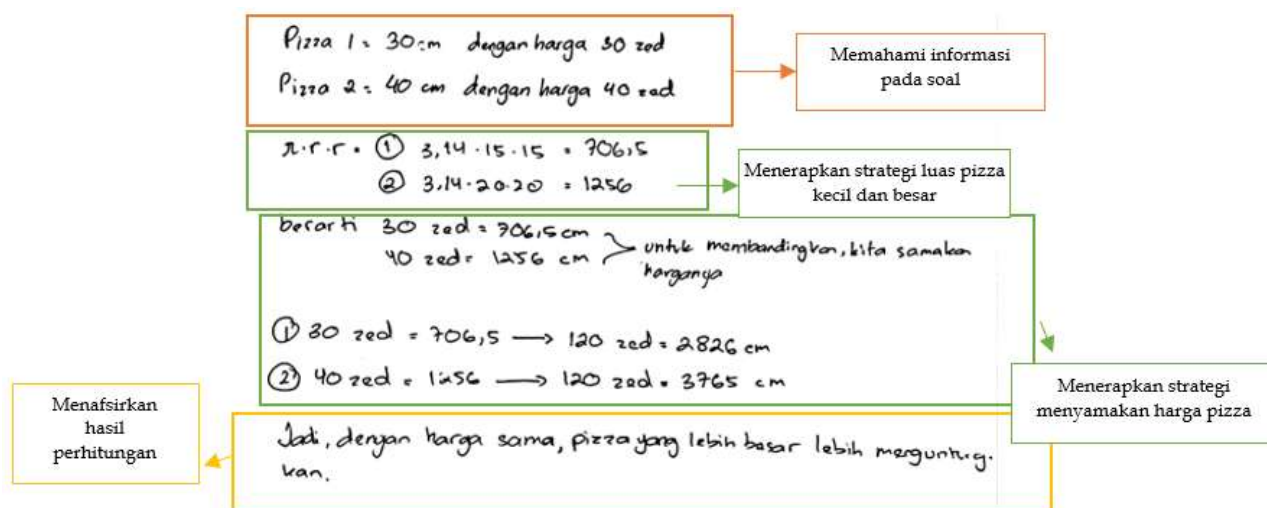 Pizza 1 = 30 cm dengan harga 30 zed
Pizza 2 = 40 cm dengan harga 40 zed
Memahami informasi
pada soal
π.r.r = ① 3,14 . 15 . 15 = 706,5
② 3,14 . 20 . 20 = 1256
Menerapkan strategi luas pizza
kecil dan besar
berarti 30 zed = 706,5 cm
40 zed = 1256 cm
untuk membandingkan, kita samakan
harganya
① 30 zed = 706,5 → 120 zed = 2826 cm
② 40 zed = 1256 → 120 zed = 3765 cm
Menerapkan strategi
menyamakan harga pizza
Menafsirkan
hasil
perhitungan
Jadi, dengan harga sama, pizza yang lebih besar lebih menguntung-
kan.